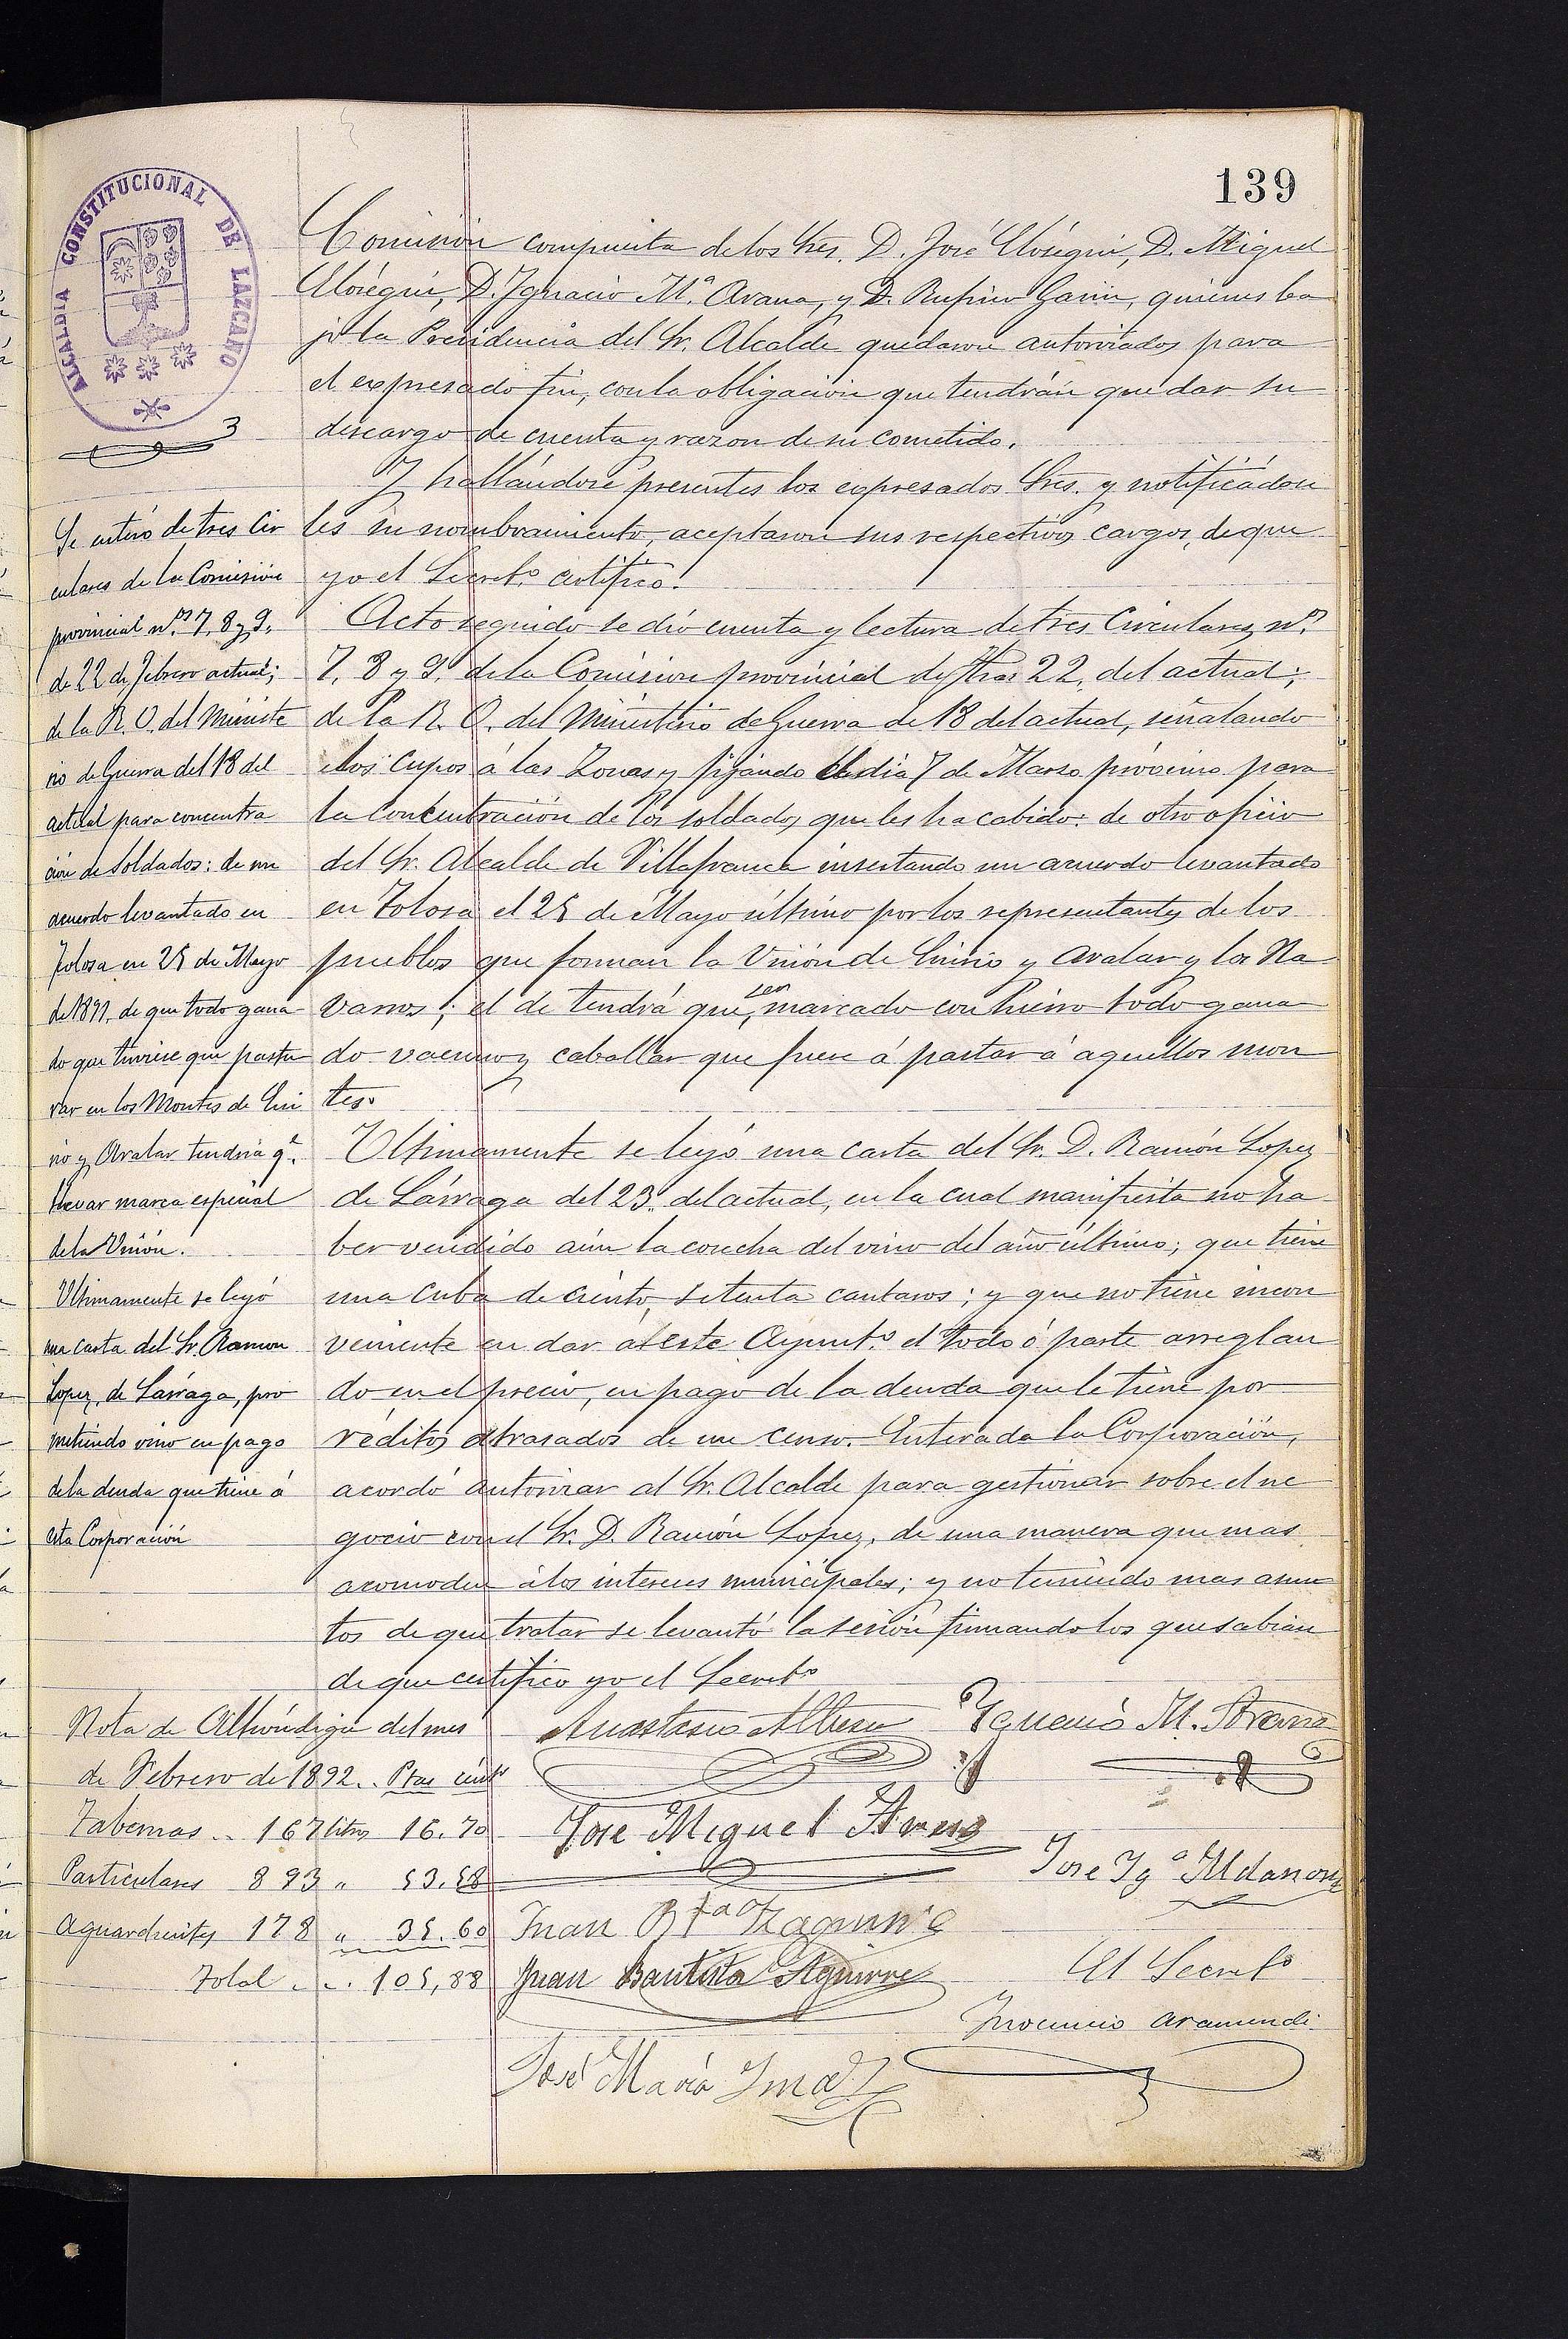 139
ALCALDIA CONSTITUCIONAL DE LAZCANO
3
Comisión compuesta de los Sres. D. José Elósegui, D. Miguel
Elósegui, D. Ignacio M.ª Arana, y D. Rufino Garin, quienes ba
jo la Presidencia del Sr. Alcalde quedaron autorizados para
el expresado fin, con la obligación que tendrán que dar su
descargo de cuenta y razon de su cometido.
Y hallándose presentes los expresados Sres. y notificádou
les su nombramiento, aceptaron sus respectivos cargos, de que
yo el Secret.º certifico.
Acto seguido se dió cuenta y lectura de tres Circulares n.os
7, 8 y 9. de la Comision provincial de fhas 22, del actual;
de la R. O. del Ministerio de Guerra de 18 del actual, señalando
los cupos á las Zonas y fijando el dia 7 de Marzo próximo para
la concentración de los soldados que les ha cabido: de otro oficio
del Sr. Alcalde de Villafranca insertando un acuerdo levantado
en Tolosa el 25 de Mayo último por los representantes de los
pueblos que forman la Unión de Enirio y Aralar y los Na
varros; el de tendrá que ser marcado con hierro todo gana
do vacuno y caballar que fuere á pastar á aquellos mon
tes.
Ultimamente se leyó una carta del Sr. D. Ramón Lopez
de Lárraga del 23. del actual, en la cual manifiesta no ha
ber vendido aún la cosecha del vino del año último; que tiene
una Cuba de ciento setenta cantaros; y que no tiene incon
veniente en dar á este Ayunt.º el todo ó parte arreglan
do en el precio, en pago de la deuda que le tiene por
réditos atrasados de un censo. Enterada la Corporación,
acordó autorizar al Sr. Alcalde para gestionar sobre el ne
gocio con el Sr. D. Ramón Lopez, de una manera que mas
acomoden á los intereses municipales; y no teniendo mas asun
tos de que tratar se levantó la sesión firmando los que sabian
de que certifico yo el Secret.º
Se enteró de tres Cir
culares de la Comision
provincial n.os 7, 8 y 9,
de 22 de Febrero actual;
de la R. O. del Ministe
rio de Guerra del 18 del
actual para concentra
ción de soldados: de un
acuerdo levantado en
Tolosa en 25 de Mayo
de 1891, de que todo gana
do que tuviese que pastu
rar en los Montes de Eni
rio y Aralar tendria q.e
llevar marca especial
de la Unión.
Ultimamente se leyó
una carta del Sr. Ramon
Lopez, de Lárraga, pro
metiendo vino en pago
de la deuda que tiene á
esta Corporación
Nota de Alhóndiga del mes
de Febrero de 1892.. Ptas cént.s
Tabernas .. 167 litros 16.70
Particulares 893 " 53.58
Aguardientes 178 " 35.60
Total ... 105,88
Anastasio Ignacio M. Arana
José Miguel
Jose Ig.º Aldanon
Juan Bta
Juan Bautista Aguirre
El Secret.º
Inocencio Aramendi
José Maria Imaz